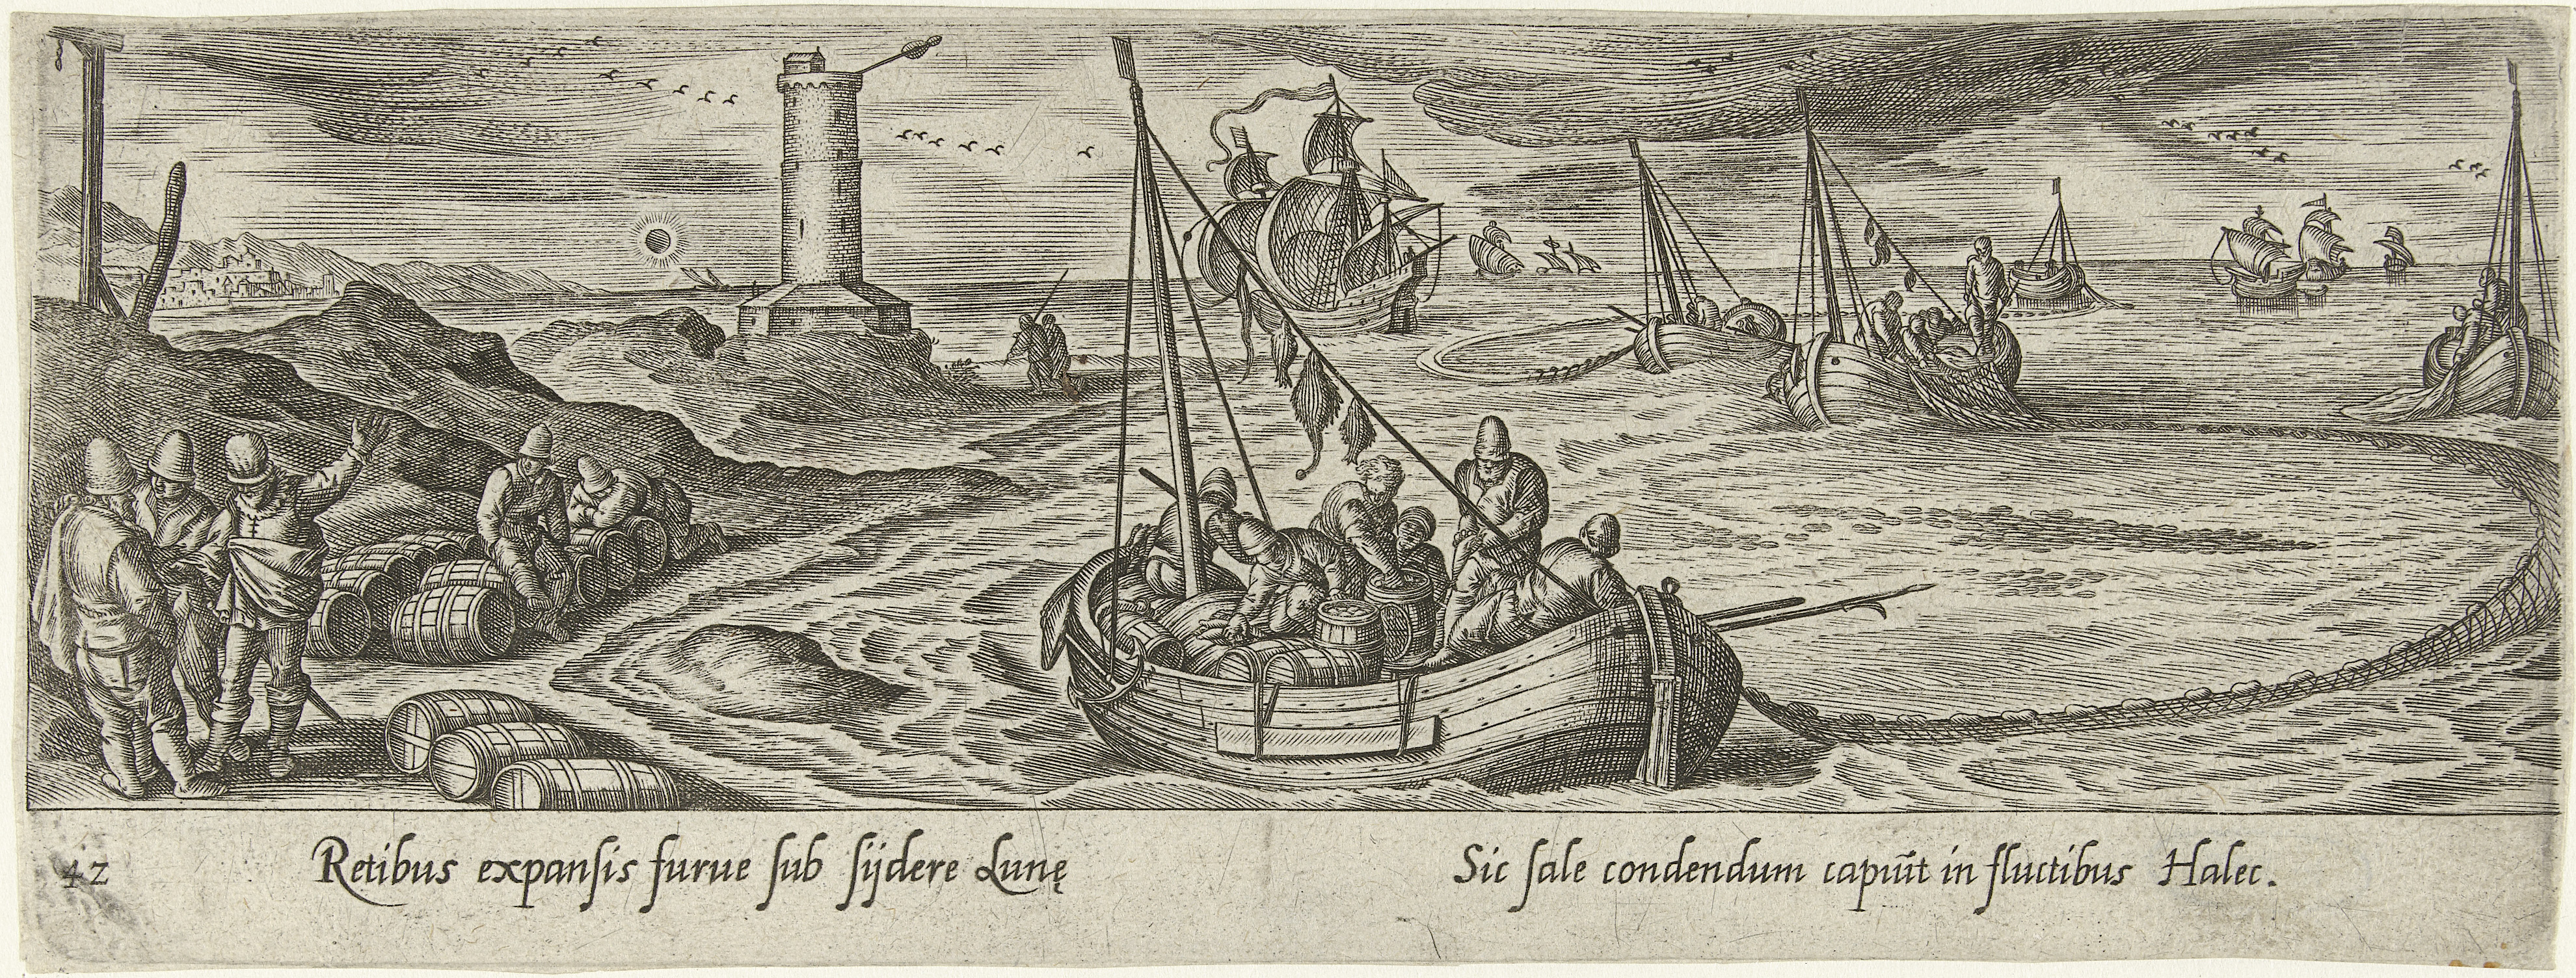 42
Retibus expansis furue sub sijdere Lunę Sic sale condendum capiūt in fluctibus Halec.